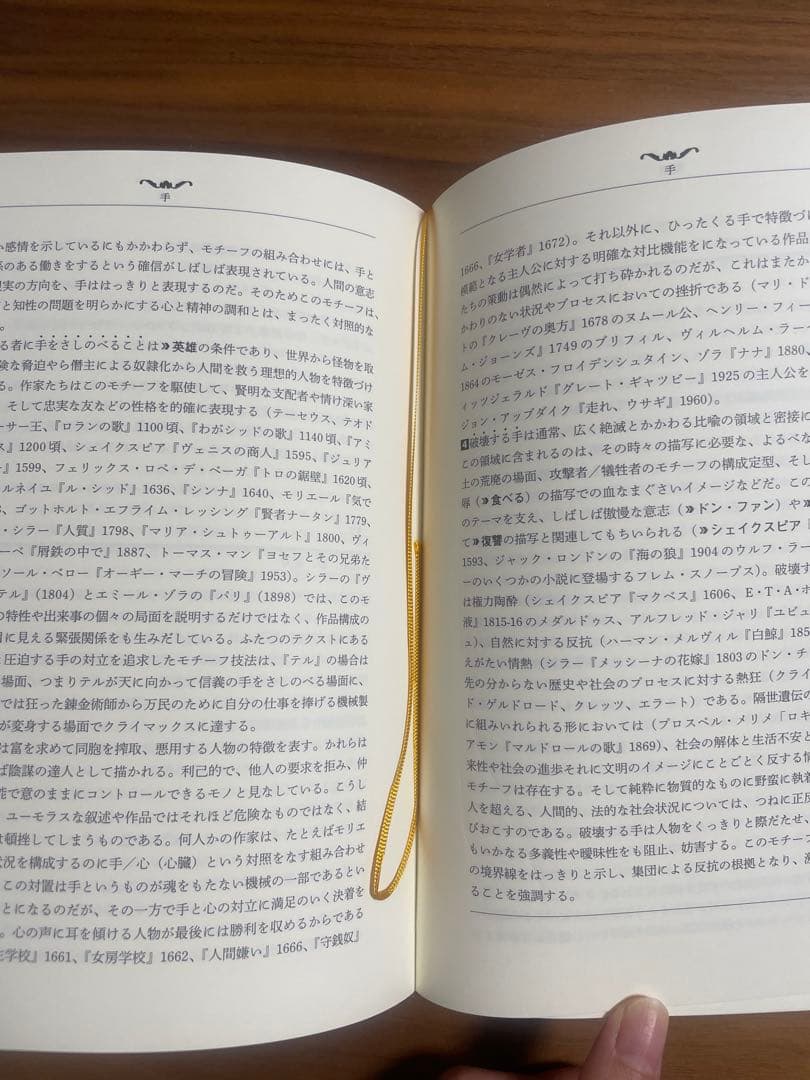 手
い感情を示しているにもかかわらず、モチーフの組み合わせには、手と
係のある働きをするという確信がしばしば表現されている。人間の意志
現実の方向を、手ははっきりと表現するのだ。そのためこのモチーフは、
と知性の問題を明らかにする心と精神の調和とは、まったく対照的な
。
る者に手をさしのべることは»英雄の条件であり、世界から怪物を取
険な脅迫やら僭主による奴隷化から人間を救う理想的人物を特徴づけ
る。作家たちはこのモチーフを駆使して、賢明な支配者や情け深い家
、そして忠実な友などの性格を的確に表現する（テーセウス、テオド
ーサー王、『ロランの歌』1100頃、『わがシッドの歌』1140頃、『アミ
ス』1200頃、シェイクスピア『ヴェニスの商人』1595、『ジュリア
ー』1599、フェリックス・ロペ・デ・ベーガ『トロの鋸壁』1620頃、
ルネイユ『ル・シッド』1636、『シンナ』1640、モリエール『気で
3、ゴットホルト・エフライム・レッシング『賢者ナータン』1779、
・シラー『人質』1798、『マリア・シュトゥーアルト』1800、ヴィ
ーベ『屑鉄の中で』1887、トーマス・マン『ヨセフとその兄弟た
ソール・ベロー『オーギー・マーチの冒険』1953）。シラーの『ヴ
テル』(1804) とエミール・ゾラの『パリ』(1898) では、このモ
の特性や出来事の個々の局面を説明するだけではなく、作品構成の
目に見える緊張関係をも生みだしている。ふたつのテクストにある
と圧迫する手の対立を追求したモチーフ技法は、『テル』の場合は
場面、つまりテルが天に向かって信義の手をさしのべる場面に、
では狂った錬金術師から万民のために自分の仕事を捧げる機械製
が変身する場面でクライマックスに達する。
は富を求めて同胞を搾取、悪用する人物の特徴を表す。かれらは
ば陰謀の達人として描かれる。利己的で、他人の要求を拒み、仲
能で意のままにコントロールできるモノと見なしている。こうし
、ユーモラスな叙述や作品ではそれほど危険なものではなく、結
は頓挫してしまうものである。何人かの作家は、たとえばモリエ
状況を構成するのに手／心（心臓）という対照をなす組み合わせ
この対置は手というものが魂をもたない機械の一部であるとい
とになるのだが、その一方で手と心の対立に満足のいく決着を
。心の声に耳を傾ける人物が最後には勝利を収めるからである
学校』1661、『女房学校』1662、『人間嫌い』1666、『守銭奴』
手
1666、『女学者』1672）。それ以外に、ひったくる手で特徴づけ
模範となる主人公に対する明確な対比機能をになっている作品
たちの策動は偶然によって打ち砕かれるのだが、これはまたか
かわりのない状況やプロセスにおいての挫折である（マリ・ド
トの『クレーヴの奥方』1678のヌムール公、ヘンリー・フィー
ム・ジョーンズ』1749のブリフィル、ヴィルヘルム・ラー
1864のモーゼス・フロイデンシュタイン、ゾラ『ナナ』1880、
ィッツジェラルド『グレート・ギャツビー』1925の主人公を
ジョン・アップダイク『走れ、ウサギ』1960）。
4破壊する手は通常、広く絶滅とかかわる比喩の領域と密接に
この領域に含まれるのは、その時々の描写に必要な、よるべな
土の荒廃の場面、攻撃者／犠牲者のモチーフの構成定型、そし
辱（»食べる）の描写での血なまぐさいイメージなどだ。この
のテーマを支え、しばしば傲慢な意志（»ドン・ファン）や»
て»復讐の描写と関連してもちいられる（»シェイクスピア『
1593、ジャック・ロンドンの『海の狼』1904のウルフ・ラー
ーのいくつかの小説に登場するフレム・スノープス）。破壊す
は権力陶酔（シェイクスピア『マクベス』1606、E・T・A・ホ
液』1815-16のメダルドゥス、アルフレッド・ジャリ『ユビュ
ュ）、自然に対する反抗（ハーマン・メルヴィル『白鯨』185
えがたい情熱（シラー『メッシーナの花嫁』1803のドン・チ
先の分からない歴史や社会のプロセスに対する熱狂（クライ
ド・ゲルドロード、クレッツ、エラート）である。隔世遺伝の
に組みいれられる形においては（プロスペル・メリメ「ロキ
アモン『マルドロールの歌』1869）、社会の解体と生活不安と
来性や社会の進歩それに文明のイメージにことごとく反する情
モチーフは存在する。そして純粋に物質的なものに野蛮に執着
人を超える、人間的、法的な社会状況については、つねに正反
びおこすのである。破壊する手は人物をくっきりと際だたせ、
もいかなる多義性や曖昧性をも阻止、妨害する。このモチー
の境界線をはっきりと示し、集団による反抗の根拠となり、
ることを強調する。